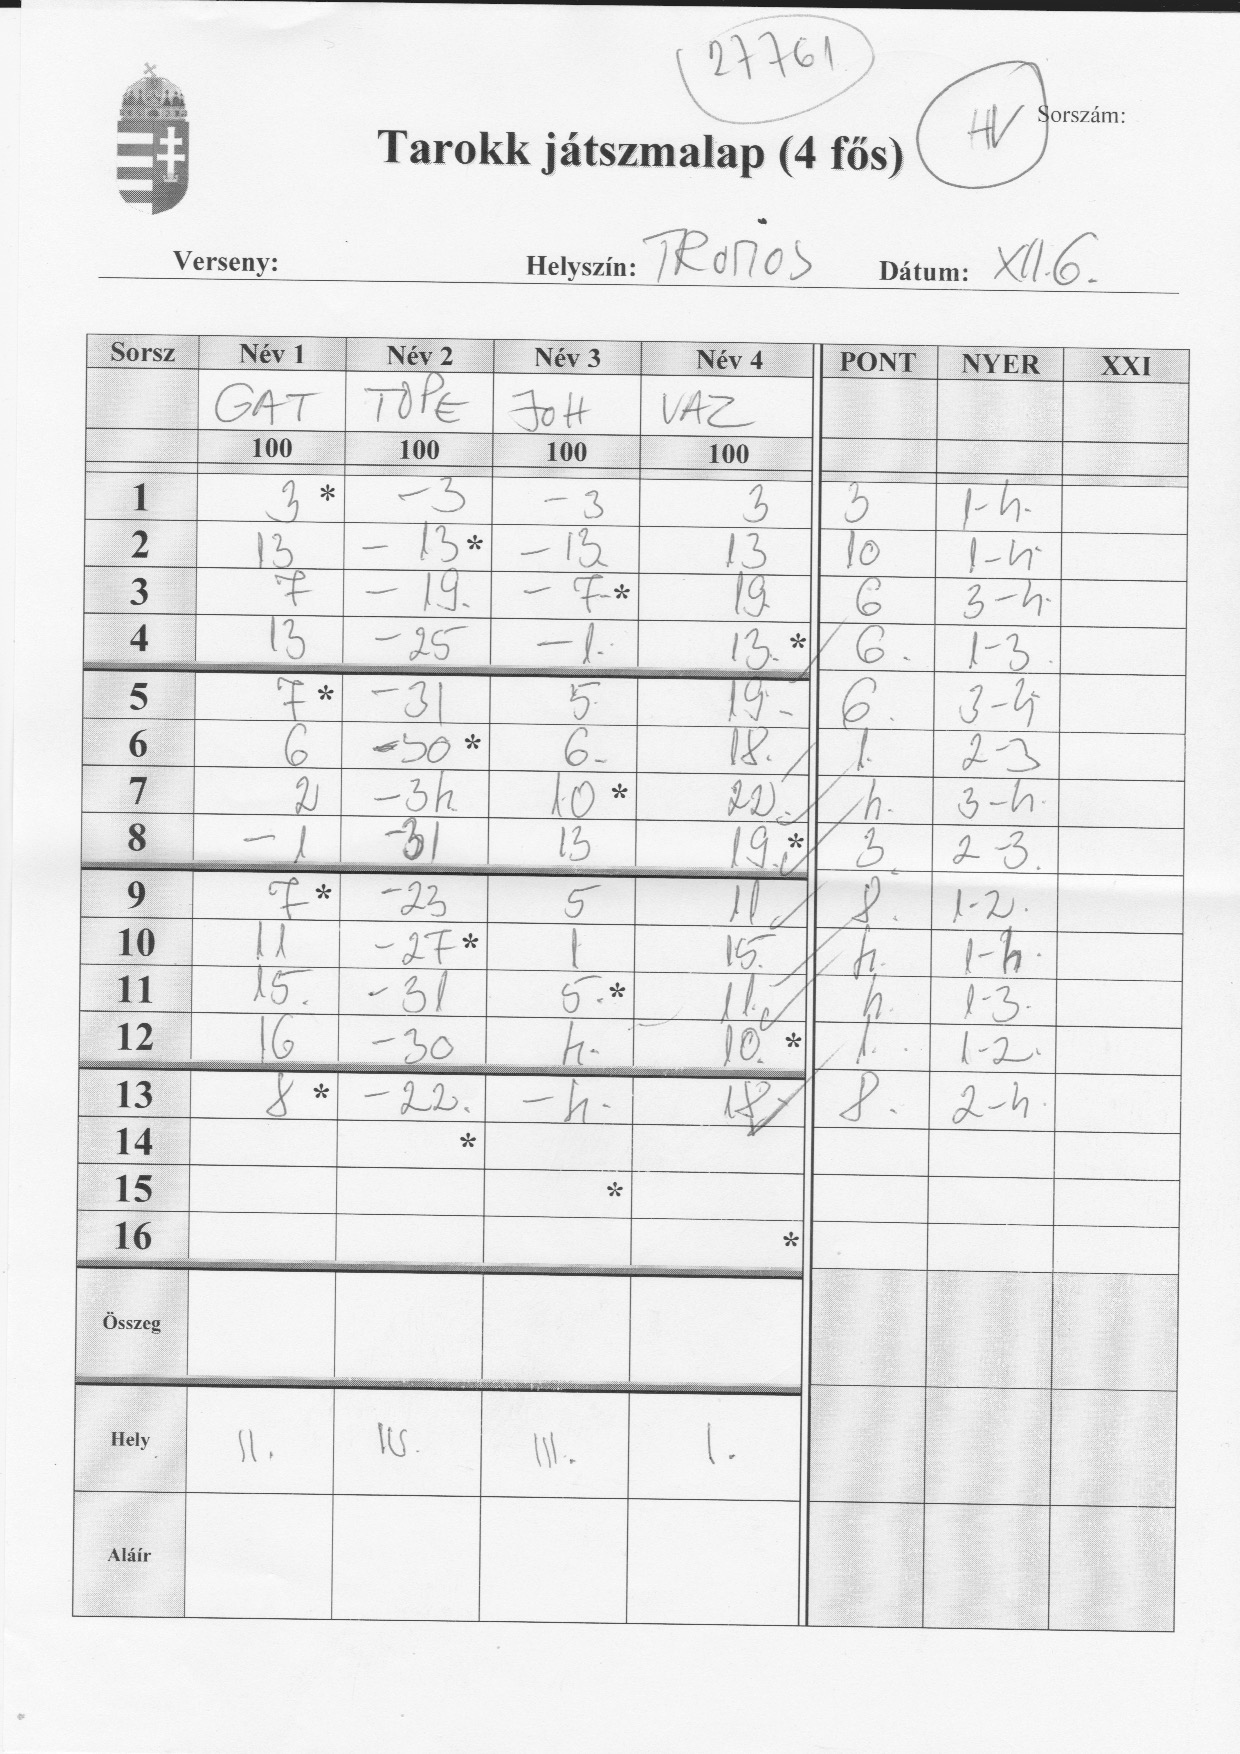 27761
HV
Sorszám:
Tarokk játszmalap (4 fős)
Verseny: Helyszín: Dátum: XII.6.
Sorsz Név 1 Név 2 Név 3 Név 4 PONT NYER XXI
GAT TOPE JOH VAZ
100 100 100 100
1 3 * -3 -3 3 3 1-4.
2 13 -13 * -13 13 10 1-4
3 7 -19. -7- * 19 6 3-4.
4 13 -25 -1. 13. * 6. 1-3.
5 7 * -31 5 19- 6. 3-4
6 6 -30 * 6- 18. 1. 2-3
7 2 -34. 10 * 22. 4. 3-4.
8 -1 -31 13 19. * 3. 2-3.
9 7 * -23 5 11. 8. 1-2.
10 11 -27 * 1 15. 4. 1-4.
11 15. -31 5. * 11. 4. 1-3.
12 16 -30 4. 10. * 1. 1-2.
13 8 * -22. -4. 18 8. 2-4.
14 *
15 *
16 *
Összeg
Hely II. IV. III. I.
Aláír